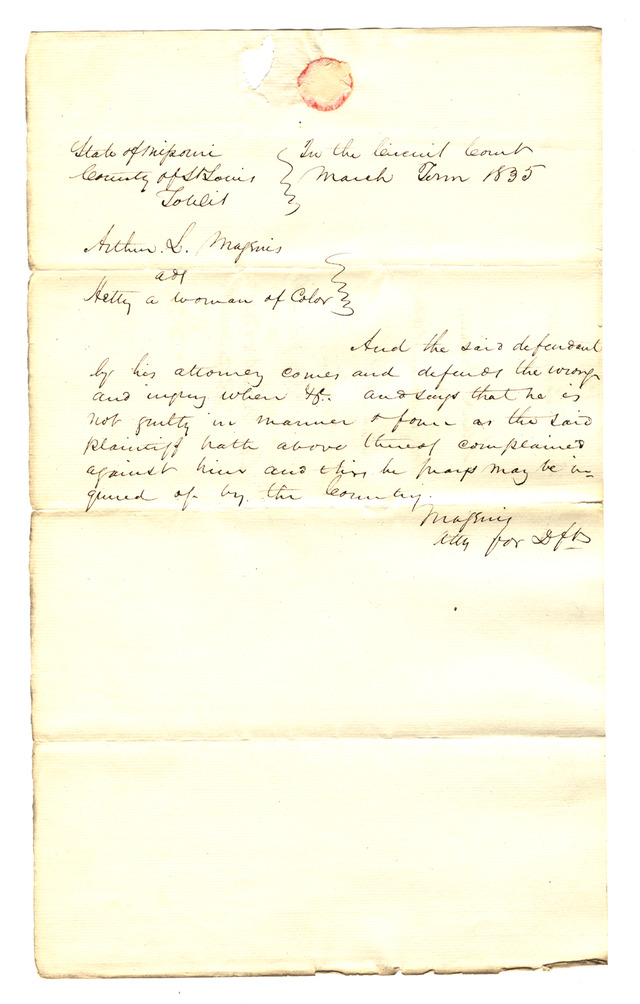 State of Missouri } In the Circuit Court
County of St Louis } March Term 1835
To Wit
Arthur. L. Magenis
ads
Hetty a woman of Color }
And the said defendant
by his attorney comes and defends the wrong
and injury when &c. and says that he is
not guilty in manner & form as the said
plaintiff hath above thereof complained
against him and this he prays may be in=
quired of by the Country.
Magenis
Atty for Dft